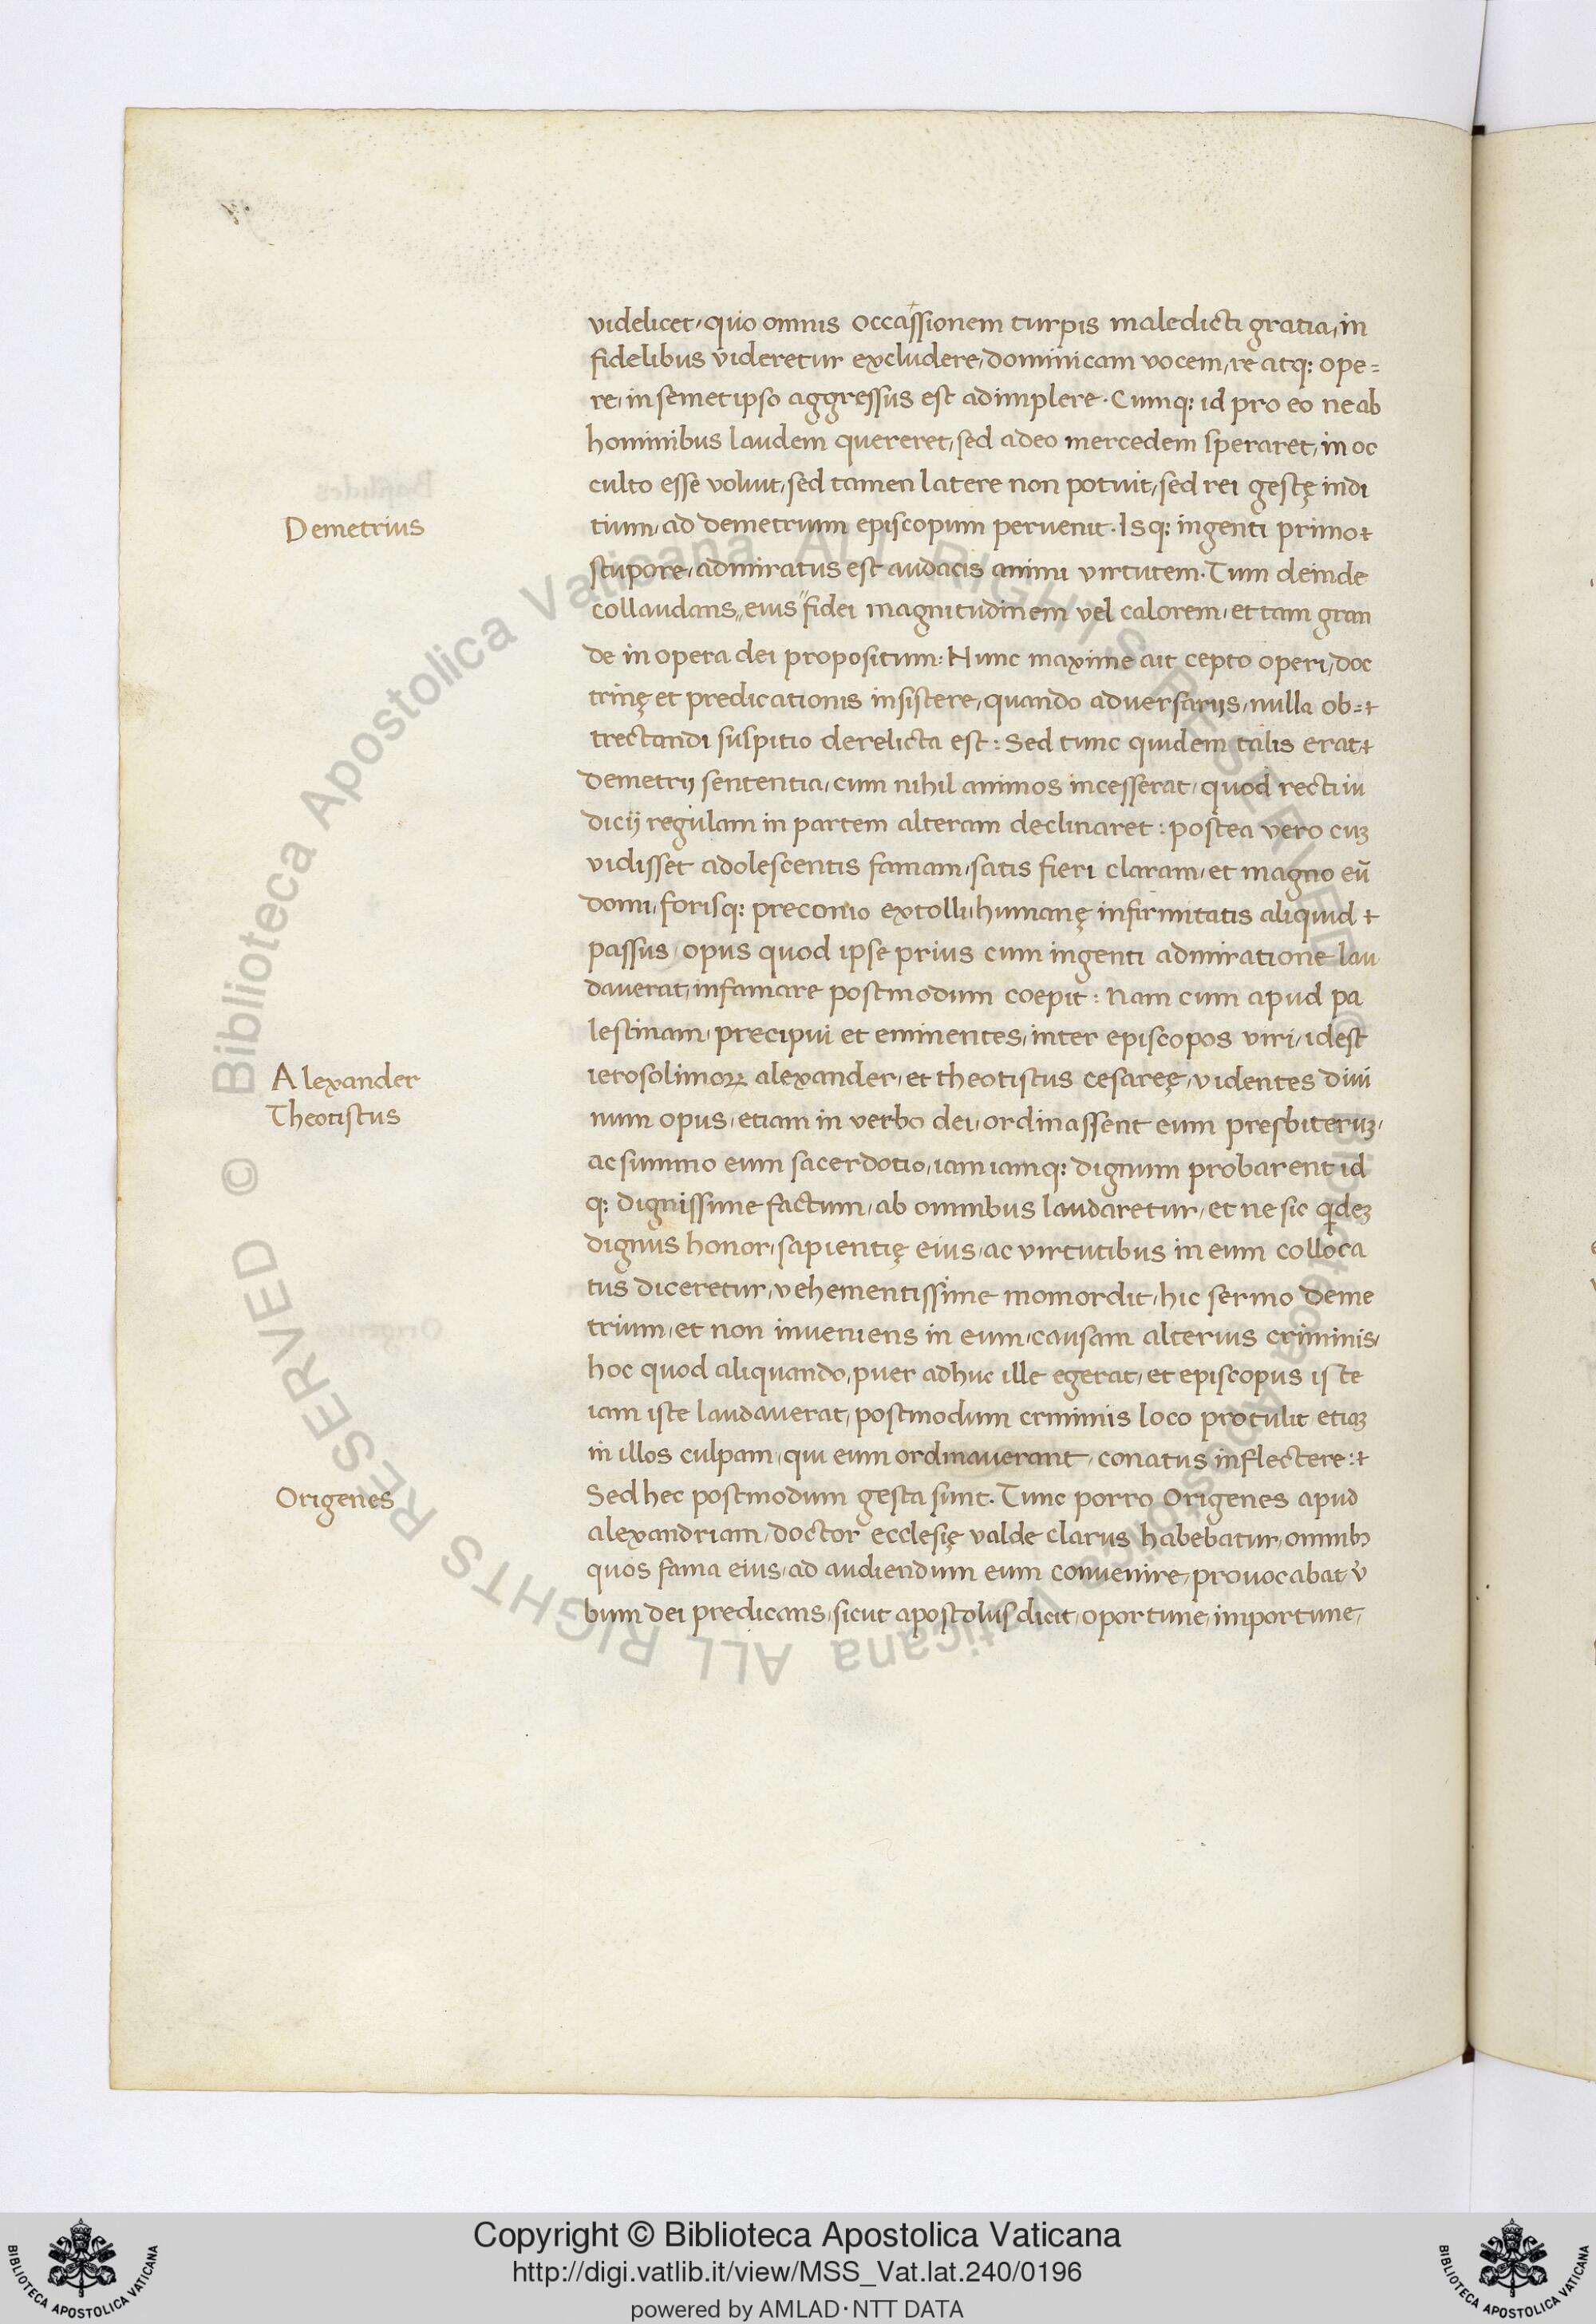 videlicet, quo omnis occassionem turpis maledicti gratia, in
fidelibus videretur excludere, dominicam vocem, re atq: ope=
re, in semet ipso aggressus est adimplere. Cumq: id pro eo ne ab
hominibus laudem quereret, sed adeo mercedem speraret, in oc
culto esse voluit, sed tamen latere non potuit, sed rei gestę indi
Demetrius
tium, ad demetrium episcopum peruenit. Isq: ingenti primo
stupore, admiratus est audacis animi virtutem. Tum deinde
collaudans, eius fidei magnitudinem vel calorem, et tam gran
de in opera dei propositum: Nunc maxime ait cepto operi, doc
trinę et predicationis insistere, quando adversarijs, nulla ob=
trectandi suspitio derelicta est: Sed tunc quidem talis erat
demetrij sententia, cum nihil animos incesserat, quod recti iu
dicij regulam in partem alteram declinaret: postea vero cuꝫ
vidisset adolescentis famam, satis fieri claram, et magno eū
domi, forisq: preconio extolli, humanę infirmitatis aliquid
passus, opus quod ipse prius cum ingenti admiratione lau
dauerat, infamare postmodum coepit: Nam cum apud pa
lestinam, precipui et eminentes, inter episcopos viri, idest
Alexander
ierosolimoꝝ alexander, et theotistus cesareę, videntes divi
Theotistus
num opus, etiam in verbo dei, ordinassent eum presbiteruꝫ,
ac summo eum sacerdotio, iam iamq: dignum probarent id
q: dignissime factum, ab omnibus laudaretur, et ne sic qdeꝫ
dignus honor, sapientię eius, ac virtutibus in eum colloca
tus diceretur, vehementissime momordit, hic sermo deme
trium, et non inveniens in eum, causam alterius criminis,
hoc quod aliquando, puer adhuc ille egerat, et episcopus iste
iam iste laudauerat, postmodum criminis loco protulit etiaꝫ
in illos culpam, qui eum ordinauerant, conatus inflectere:
Origenes
Sed hec postmodum gesta sunt. Tunc porro Origenes apud
alexandriam, doctor ecclesię valde clarus habebatur, omnibꝫ
quos fama eius, ad audiendum eum convenire, prouocabat v̄
bum dei predicans, sicut apostolus dicit, oportune, importune,
© Biblioteca Apostolica Vaticana ALL RIGHTS RESERVED © Biblioteca Apostolica Vaticana ALL RIGHTS RESERVED
Copyright © Biblioteca Apostolica Vaticana
http://digi.vatlib.it/view/MSS_Vat.lat.240/0196
powered by AMLAD·NTT DATA
BIBLIOTECA APOSTOLICA VATICANA
BIBLIOTECA APOSTOLICA VATICANA